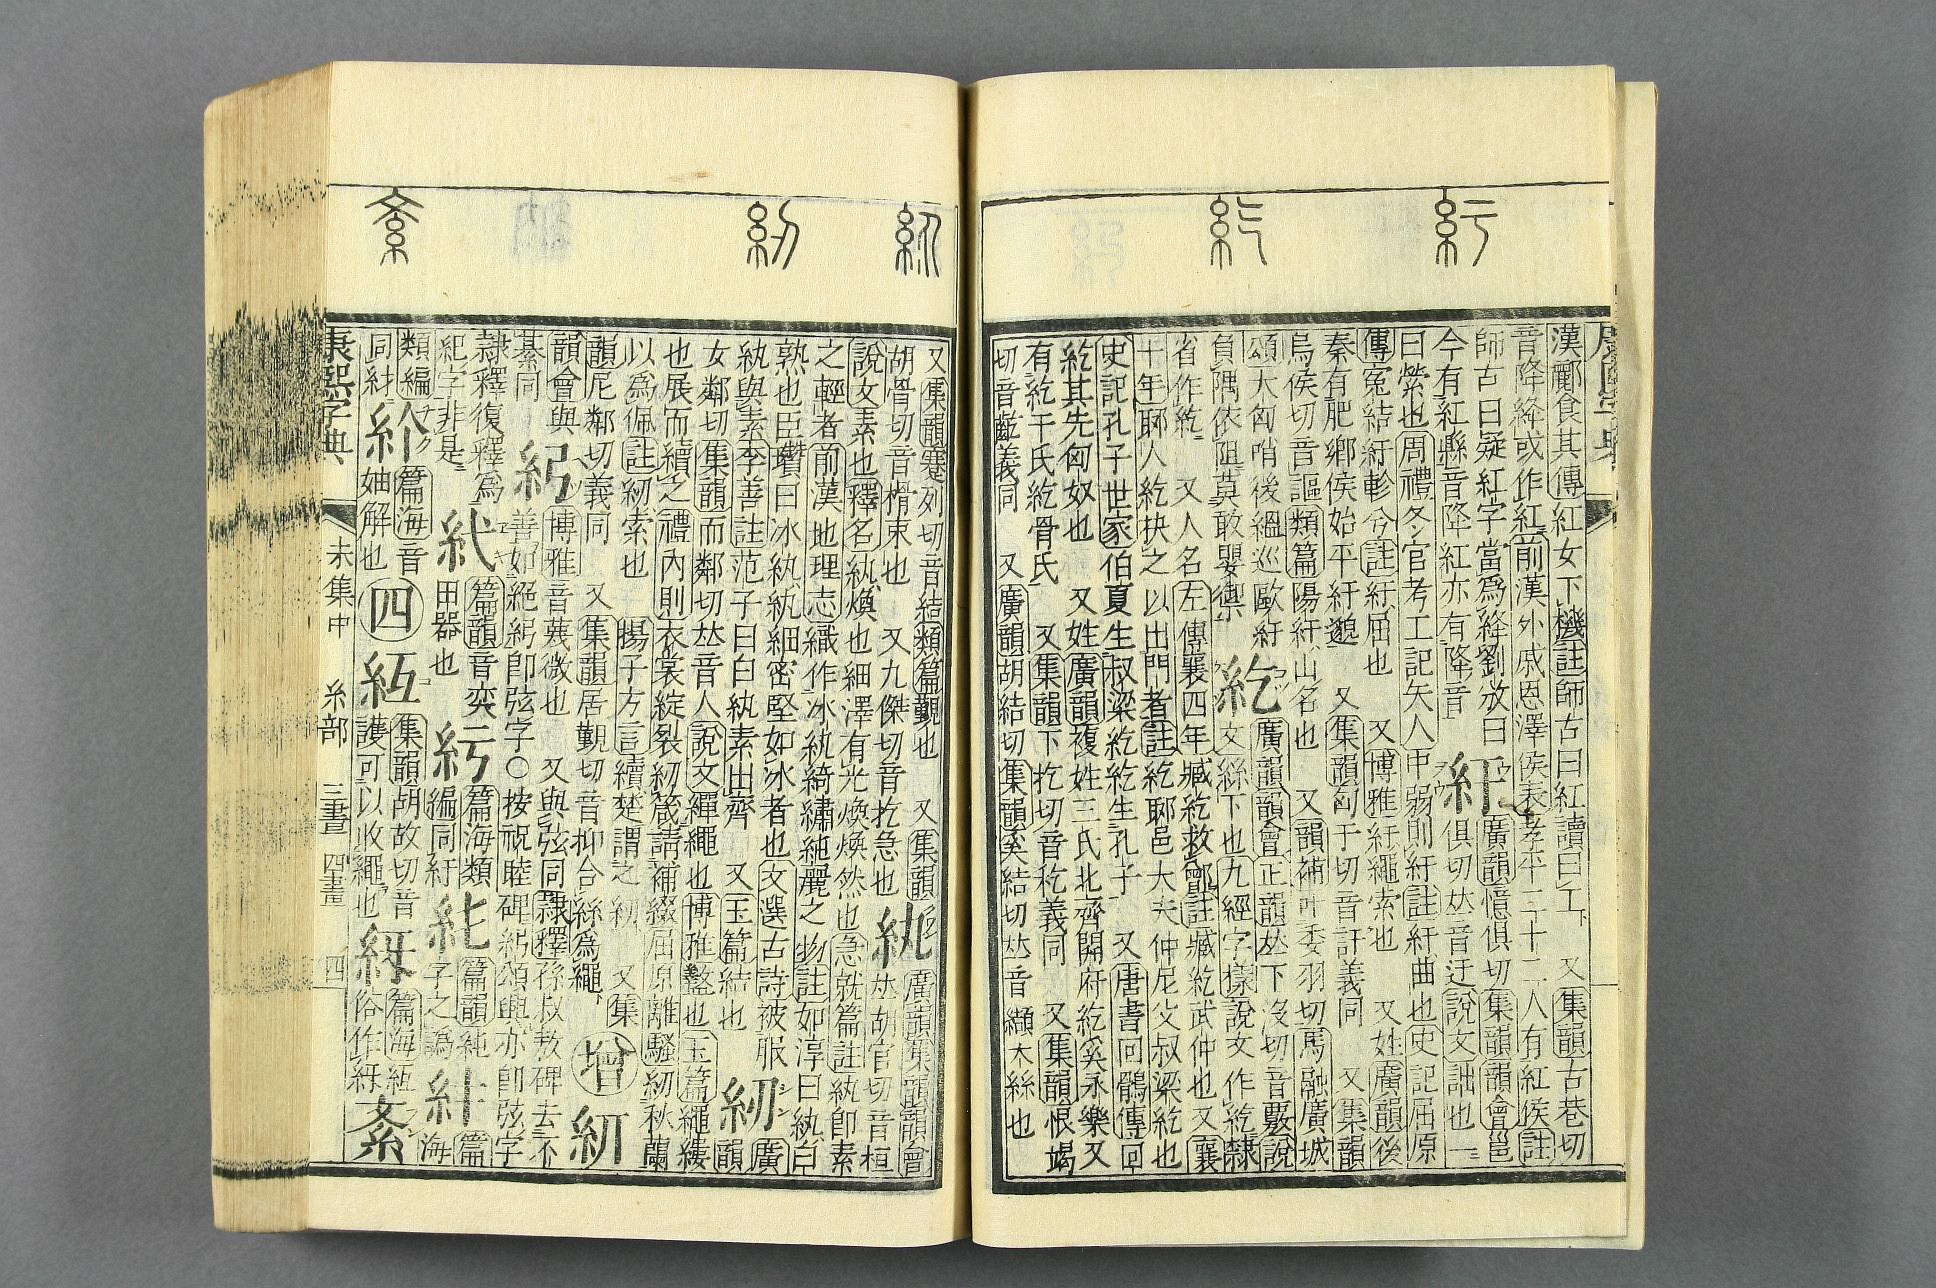 紆
紇
漢酈食其傳紅女下機註師古曰紅讀曰工 又集韻古巷切
音降絳或作紅前漢外戚恩澤侯表孝平二十二人有紅侯註
師古曰疑紅字當爲絳劉攽曰
今有紅縣音降紅亦有降音
紆 廣韻憶俱切集韻韻會邕
俱切𠀤音迂說文詘也一
曰縈也周禮冬官考工記矢人中弱則紆註紆曲也史記屈原
傳寃結紆軫兮註紆屈也 又博雅紆繩索也 又姓廣韻後
秦有肥鄉侯始平紆邈 又集韻匈于切音訏義同 又集韻
烏侯切音謳類篇陽紆山名也 又韻補叶委羽切馬融廣城
頌大匈哨後緼巡歐紆
負隅依阻莫敢嬰禦
紇 廣韻韻會正韻𠀤下沒切音覈說
文絲下也九經字樣說文作紇隸
省作紇 又人名左傳襄四年臧紇救鄫註臧紇武仲也又襄
十年郰人紇抉之以出門者註紇郰邑大夫仲尼父叔梁紇也
史記孔子世家伯夏生叔梁紇紇生孔子 又唐書回鶻傳回
紇其先匈奴也 又姓廣韻複姓三氏北齊開府紇奚永樂又
有紇干氏紇骨氏 又集韻下扢切音籺義同 又集韻恨竭
切音齕義同 又廣韻胡結切集韻奚結切𠀤音纈大絲也
紈
紉
紊
又集韻蹇列切音結類篇覲也 又集韻
胡骨切音榾束也 又九傑切音扢急也
紈 廣韻集韻韻會
𠀤胡官切音桓
說文素也釋名紈煥也細澤有光煥煥然也急就篇註紈卽素
之輕者前漢地理志織作冰紈綺繡純麗之物註如淳曰紈白
熟也臣瓚曰冰紈紈細密堅如冰者也文選古詩被服
紈與素李善註范子曰白紈素出齊 又玉篇結也
紉 廣
韻
女鄰切集韻而鄰切𠀤音人說文繟繩也博雅盭也玉篇繩縷
也展而續之禮內則衣裳綻裂紉箴請補綴屈原離騷紉秋蘭
以爲佩註紉索也 揚子方言續楚謂之紉 又集
韻尼鄰切義同 又集韻居覲切音抑合絲爲繩
增 紉
韻會與
綦同
紖 博雅音蔑微也 又與弦同隸釋孫叔敖碑去不
善如絕紖卽弦字○按祝睦碑紖頌興亦卽弦字
隸釋復釋爲
紀字非是
紎 篇韻音奕
田器也
篇海類
編同紆
紪 篇韻純
字之譌
篇
海
類編
同紂
紒 篇海音
妯解也
四
集韻胡故切音
護可以收繩也
篇海
俗作
紊
康熙字典 未集中 糸部 三畫 四畫 四